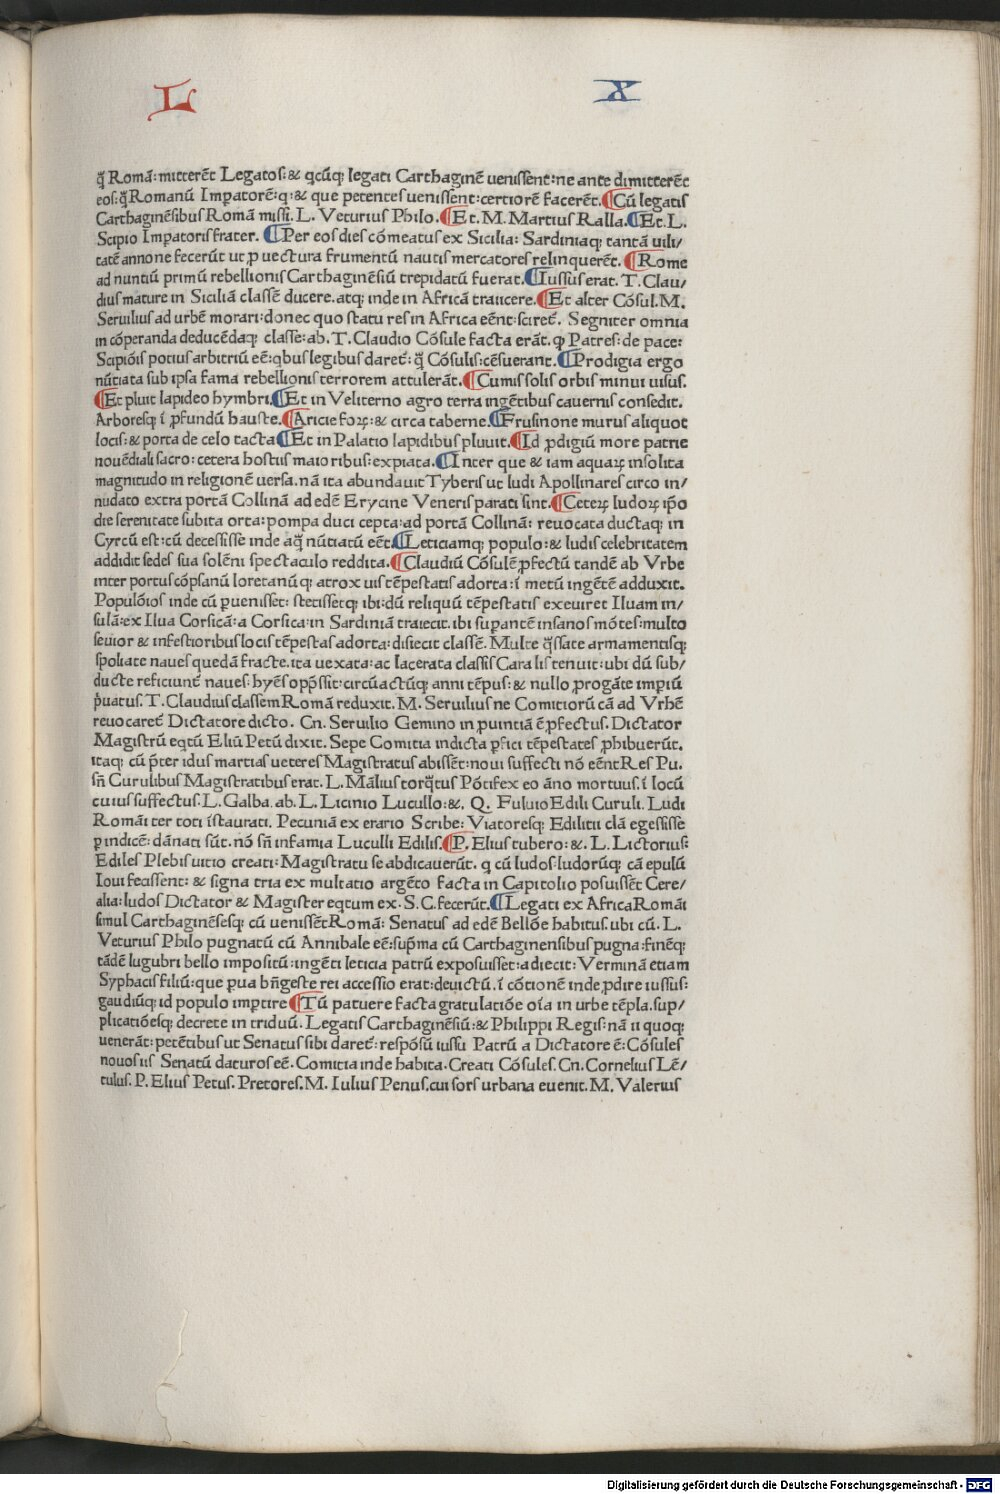 L X
q̃ Romā: mitterēt Legatos: & qcūq; legati Carthaginē uenissent: ne ante dimitterēt
eos: q̃ Romanū Imꝑatorē: q: & que petentes uenissent: certiorē facerēt. ¶Cū legatis
Carthaginēsibus Romā missi. L. Veturius Philo. ¶Et. M. Martius Ralla. ¶Et. L.
Scipio Imꝑatoris frater. ¶Per eos dies cōmeatus ex Sicilia: Sardiniaq; tantā uili/
tatē annone fecerūt ut, ꝓ uectura frumentū nautis mercatores relinquerēt. ¶Rome
ad nuntiū primū rebellionis Carthaginēsiū trepidatū fuerat. ¶Iussus erat. T. Clau/
dius mature in Siciliā classē ducere. atq; inde in Africā traiicere. ¶Et alter Cōsul. M.
Seruilius ad urbē morari: donec quo statu res in Africa eēnt: sciret̄. Segniter omnia
in cōperanda deducēdaq; classe: ab. T. Claudio Cōsule facta erāt. ꝙ Patres: de pace:
Scipiōis potius arbitriū eē: qbus legibus daret̄: q̃ Cōsulis: cēsuerant. ¶Prodigia ergo
nūtiata sub ipsa fama rebellionis terrorem attulerāt. ¶Cumis solis orbis minui uisus.
¶Et pluit lapideo hymbri. ¶Et in Veliterno agro terra ingētibus cauernis consedit.
Arboresq; ī ꝓfundū hauste. ¶Aricie foꝝ: & circa taberne. ¶Frusinone murus aliquot
locis: & porta de celo tacta ¶Et in Palatio lapidibus pluuit. ¶Id ꝓdigiū more patrie
nouēdiali sacro: cetera hostiis maioribus: expiata. ¶Inter que & iam aquaꝝ insolita
magnitudo in religionē uersa. nā ita abundauit Tyberis ut ludi Apollinares circo in/
nudato extra portā Collinā ad edē Erycine Veneris parati sint. ¶Ceteꝝ ludoꝝ ip̄o
die serenitate subita orta: pompa duci cepta: ad portā Collinā: reuocata ductaq; in
Cyrcū est: cū decessisse inde aq̃ nūtiatū eēt. ¶Leticiamq; populo: & ludis celebritatem
addidit sedes sua solēni spectaculo reddita. ¶Claudiū Cōsulē ꝓfectū tandē ab Vrbe
inter portus cōpsanū loretanūq; atrox uis tēpestatis adorta: ī metū ingētē adduxit.
Populōios inde cū ꝑuenisset: stetissetq; ibi: dū reliquū tēpestatis exeuiret Iluam in/
sulā: ex Ilua Corsicā: a Corsica: in Sardiniā traiecit. ibi suꝑantē insanos mōtes: multo
seuior & infestioribus locis tēpestas adorta: disiecit classē. Multe q̃ssate armamentisq;
spoliate naues quedā fracte. ita uexata: ac lacerata classis Caralis tenuit: ubi dū sub/
ducte reficiunt̄ naues: hyēs opp̄ssit: circūactūq; anni tēpus: & nullo ꝓrogāte imꝑiū
p̄uatus. T. Claudius classem Romā reduxit. M. Seruilius ne Comitiorū cā ad Vrbē
reuocaret̄ Dictatore dicto. Cn. Seruilio Gemino in ꝓuintiā ē ꝓfectus. Dictator
Magistrū eqtū Eliū Petū dixit. Sepe Comitia indicta ꝑfici tēpestates ꝓhibuerūt.
itaq; cū p̄ter idus martias ueteres Magistratus abissēt: noui suffecti nō eēnt Res Pu.
sn̄ Curulibus Magistratibus erat. L. Mālius torq̃tus Pōtifex eo āno mortuus. ī locū
cuius suffectus. L. Galba. ab. L. Licinio Lucullo: &. Q. Fuluio Edili Curuli. Ludi
Romāi ter toti īstaurati. Pecuniā ex erario Scribe: Viatoresq; Edilitii clā egessisse
ꝑ indicē: dānati sūt. nō sn̄ infamia Luculli Edilis. ¶P. Elius tubero: &. L. Lictorius:
Ediles Plebis uitio creati: Magistratu se abdicauerūt. q cū ludos: ludorūq; cā epulū
Ioui fecissent: & signa tria ex multatio argēto facta in Capitolio posuissēt Cere/
alia: ludos Dictator & Magister eqtum ex. S. C. fecerūt. ¶Legati ex Africa Romāi
simul Carthaginēsesq; cū uenissēt Romā: Senatus ad edē Bellōe habitus. ubi cū. L.
Veturius Philo pugnatū cū Annibale eē: sup̄ma cū Carthaginensibus pugna: finēq;
tādē lugubri bello impositū: ingēti leticia patrū exposuisset: adiecit: Verminā etiam
Syphacis filiū: que ꝑua bn̄ geste rei accessio erat: deuictū. ī cōtionē inde ꝓdire iussus:
gaudiūq; id populo imꝑtire ¶Tū patuere facta gratulatiōe oīa in urbe tēpla. sup/
plicatiōesq; decrete in triduū. Legatis Carthaginēsiū: & Philippi Regis: nā ii quoq;
uenerāt: petētibus ut Senatus sibi daret̄: respōsū iussu Patrū a Dictatore ē: Cōsules
nouos iis Senatū daturos eē. Comitia inde habita. Creati Cōsules. Cn. Cornelius Lē/
tulus. P. Elius Petus. Pretores. M. Iulius Penus. cui sors urbana euenit. M. Valerius
Digitalisierung gefördert durch die Deutsche Forschungsgemeinschaft - DFG